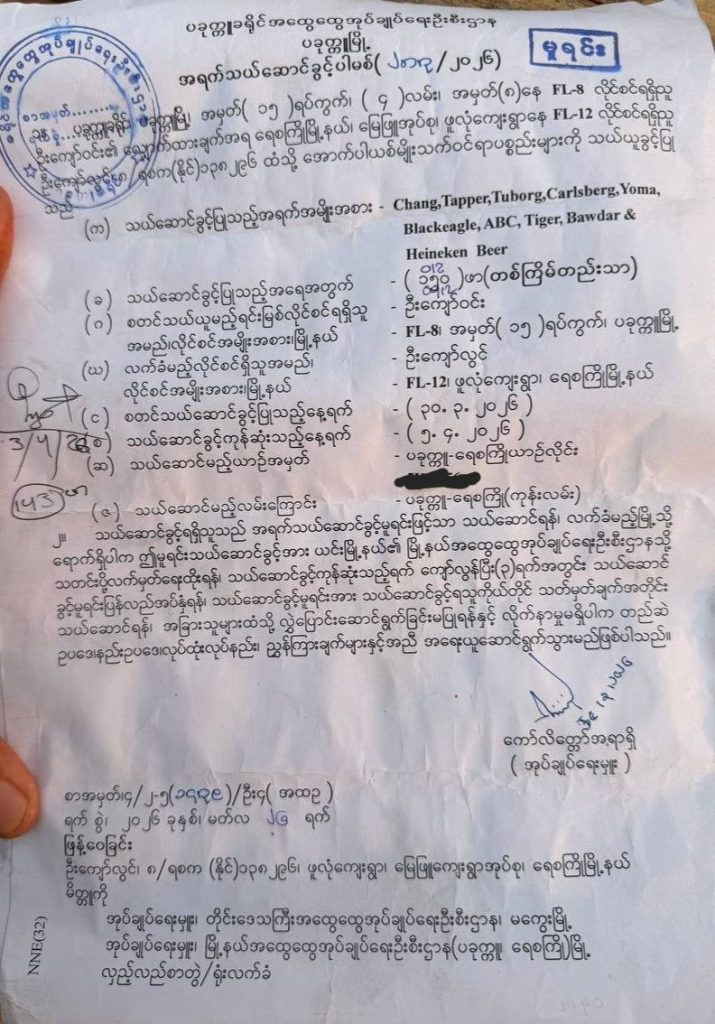 ပခုက္ကူခရိုင်အထွေထွေအုပ်ချုပ်ရေးဦးစီးဌာန
ပခုက္ကူမြို့
မူရင်း
အရက်သယ်ဆောင်ခွင့်ပါမစ်( /၂၀၂၆)
ပခုက္ကူမြို့၊ အမှတ်( ၁၅ )ရပ်ကွက်၊ ( ၄ )လမ်း၊ အမှတ်(၈)နေ FL-8 လိုင်စင်ရရှိသူ
ဦးကျော်ဝင်း၏ လျှောက်ထားချက်အရ ရေစကြိုမြို့နယ်၊ မြေဖြူအုပ်စု၊ ဖူလုံကျေးရွာနေ FL-12 လိုင်စင်ရရှိသူ
ဦးကျော်လွင်၊ ၈/ရစက(နိုင်)၁၃၈၂၉၆ ထံသို့ အောက်ပါယစ်မျိုးသက်ဝင်ရာပစ္စည်းများကို သယ်ယူခွင့်ပြု
သည်
(က) သယ်ဆောင်ခွင့်ပြုသည့်အရက်အမျိုးအစား - Chang,Tapper,Tuborg,Carlsberg,Yoma,
Blackeagle, ABC, Tiger, Bawdar &
Heineken Beer
(ခ) သယ်ဆောင်ခွင့်ပြုသည့်အရေအတွက် - ( ၁၅၀ )ဖာ(တစ်ကြိမ်တည်းသာ)
(ဂ) စတင်သယ်ယူမည့်ရင်းမြစ်လိုင်စင်ရရှိသူ - ဦးကျော်ဝင်း
အမည်၊လိုင်စင်အမျိုးအစား၊မြို့နယ် - FL-8၊ အမှတ်( ၁၅ )ရပ်ကွက်၊ ပခုက္ကူမြို့
(ဃ) လက်ခံမည့်လိုင်စင်ရရှိသူအမည်၊ - ဦးကျော်လွင်
လိုင်စင်အမျိုးအစား၊မြို့နယ် - FL-12၊ ဖူလုံကျေးရွာ၊ ရေစကြိုမြို့နယ်
(င) စတင်သယ်ဆောင်ခွင့်ပြုသည့်နေ့ရက် - ( ၃၀. ၃. ၂၀၂၆ )
(စ) သယ်ဆောင်ခွင့်ကုန်ဆုံးသည့်နေ့ရက် - ( ၅. ၄. ၂၀၂၆ )
(ဆ) သယ်ဆောင်မည့်ယာဉ်အမှတ် - ပခုက္ကူ-ရေစကြိုယာဉ်လိုင်း
143 ဖာ
(ဇ) သယ်ဆောင်မည့်လမ်းကြောင်း - ပခုက္ကူ-ရေစကြို(ကုန်းလမ်း)
၂။ သယ်ဆောင်ခွင့်ရရှိသူသည် အရက်သယ်ဆောင်ခွင့်မူရင်းဖြင့်သာ သယ်ဆောင်ရန်၊ လက်ခံမည့်မြို့သို့
ရောက်ရှိပါက ဤမူရင်းသယ်ဆောင်ခွင့်အား ယင်းမြို့နယ်၏ မြို့နယ်အထွေထွေအုပ်ချုပ်ရေးဦးစီးဌာနသို့
သတင်းပို့လက်မှတ်ရေးထိုးရန်၊ သယ်ဆောင်ခွင့်ကုန်ဆုံးသည့်ရက် ကျော်လွန်ပြီး(၃)ရက်အတွင်း သယ်ဆောင်
ခွင့်မူရင်းပြန်လည်အပ်နှံရန်၊ သယ်ဆောင်ခွင့်မူရင်းအား သယ်ဆောင်ခွင့်ရသူကိုယ်တိုင် သတ်မှတ်ချက်အတိုင်း
သယ်ဆောင်ရန်၊ အခြားသူများထံသို့ လွှဲပြောင်းဆောင်ရွက်ခြင်းမပြုရန်နှင့် လိုက်နာမှုမရှိပါက တည်ဆဲ
ဥပဒေ၊နည်းဥပဒေ၊လုပ်ထုံးလုပ်နည်း၊ ညွှန်ကြားချက်များနှင့်အညီ အရေးယူဆောင်ရွက်သွားမည်ဖြစ်ပါသည်။
ကော်လိတ္တော်အရာရှိ
( အုပ်ချုပ်ရေးမှူး )
စာအမှတ်၊၄/၂-၅( )/ဦး၄( အထဥ )
ရက် စွဲ၊ ၂၀၂၆ ခုနှစ်၊ မတ်လ ၂၆ ရက်
ဖြန့်ဝေခြင်း
ဦးကျော်လွင်၊ ၈/ရစက (နိုင်)၁၃၈၂၉၆၊ ဖူလုံကျေးရွာ၊ မြေဖြူကျေးရွာအုပ်စု၊ ရေစကြိုမြို့နယ်
မိတ္တူကို
အုပ်ချုပ်ရေးမှူး၊ တိုင်းဒေသကြီးအထွေထွေအုပ်ချုပ်ရေးဦးစီးဌာန၊ မကွေးမြို့
အုပ်ချုပ်ရေးမှူး၊ မြို့နယ်အထွေထွေအုပ်ချုပ်ရေးဦးစီးဌာန(ပခုက္ကူ၊ ရေစကြို)မြို့
လှည့်လည်စာတွဲ/ရုံးလက်ခံ
NNE(32)